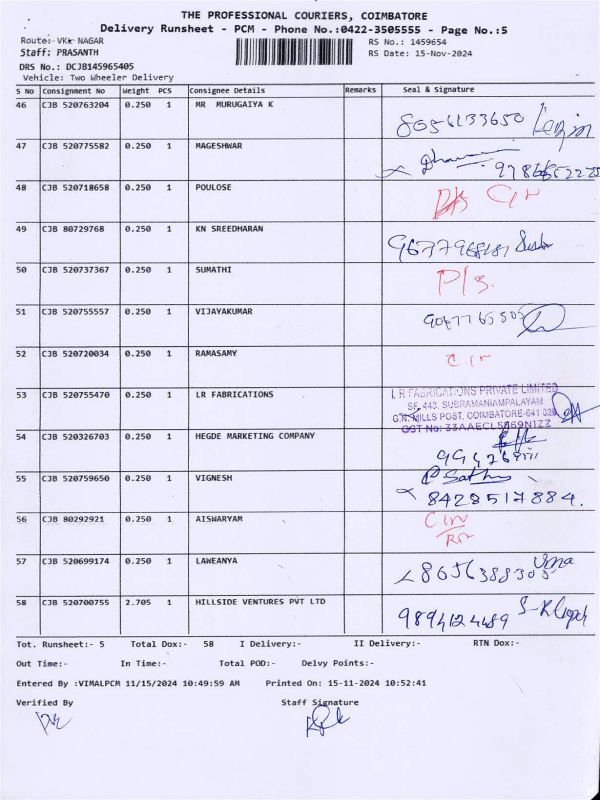 THE PROFESSIONAL COURIERS, COIMBATORE
Delivery Runsheet - PCM - Phone No.:0422-3505555 - Page No.:5
Route:- VKK NAGAR RS No.: 1459654
Staff: PRASANTH RS Date: 15-Nov-2024
DRS No.: DCJB145965405
Vehicle: Two Wheeler Delivery
S No Consignment No Weight PCS Consignee Details Remarks Seal & Signature
46 CJB 520763204 0.250 1 MR MURUGAIYA K
8056133650
47 CJB 520775582 0.250 1 MAGESHWAR
48 CJB 520718658 0.250 1 POULOSE
49 CJB 80729768 0.250 1 KN SREEDHARAN
50 CJB 520737367 0.250 1 SUMATHI
P/s.
51 CJB 520755557 0.250 1 VIJAYAKUMAR
52 CJB 520720034 0.250 1 RAMASAMY
53 CJB 520755470 0.250 1 LR FABRICATIONS
L R FABRICATIONS PRIVATE LIMITED
SF. 443, SUBRAMANIAMPALAYAM
G.N. MILLS POST, COIMBATORE-641 029
GST No: 33AAECL5069N1ZZ
54 CJB 520326703 0.250 1 HEGDE MARKETING COMPANY
55 CJB 520759650 0.250 1 VIGNESH
8428517884.
56 CJB 80292921 0.250 1 AISWARYAM
57 CJB 520699174 0.250 1 LAWEANYA
Uma
58 CJB 520700755 2.705 1 HILLSIDE VENTURES PVT LTD
9894124489
Tot. Runsheet:- 5 Total Dox:- 58 I Delivery:- II Delivery:- RTN Dox:-
Out Time:- In Time:- Total POD:- Delvy Points:-
Entered By :VIMALPCM 11/15/2024 10:49:59 AM Printed On: 15-11-2024 10:52:41
Verified By Staff Signature